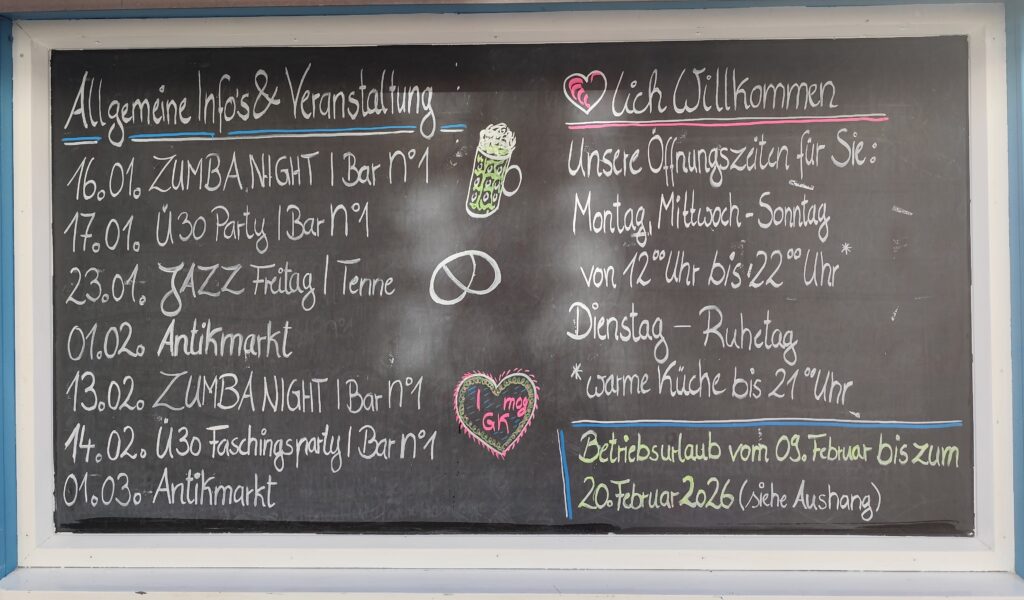 Allgemeine Info's & Veranstaltung
16.01. ZUMBA NIGHT | Bar n°1
17.01. Ü30 Party | Bar n°1
23.01. JAZZ Freitag | Tenne
01.02. Antikmarkt
13.02. ZUMBA NIGHT | Bar n°1
14.02. Ü30 Faschingsparty | Bar n°1
01.03. Antikmarkt
I mog
GK
lich Willkommen
Unsere Öffnungszeiten für Sie:
Montag, Mittwoch - Sonntag
von 12°° Uhr bis 22°° Uhr*
Dienstag – Ruhetag
*warme Küche bis 21°° Uhr
Betriebsurlaub vom 09. Februar bis zum
20. Februar 2026 (siehe Aushang)